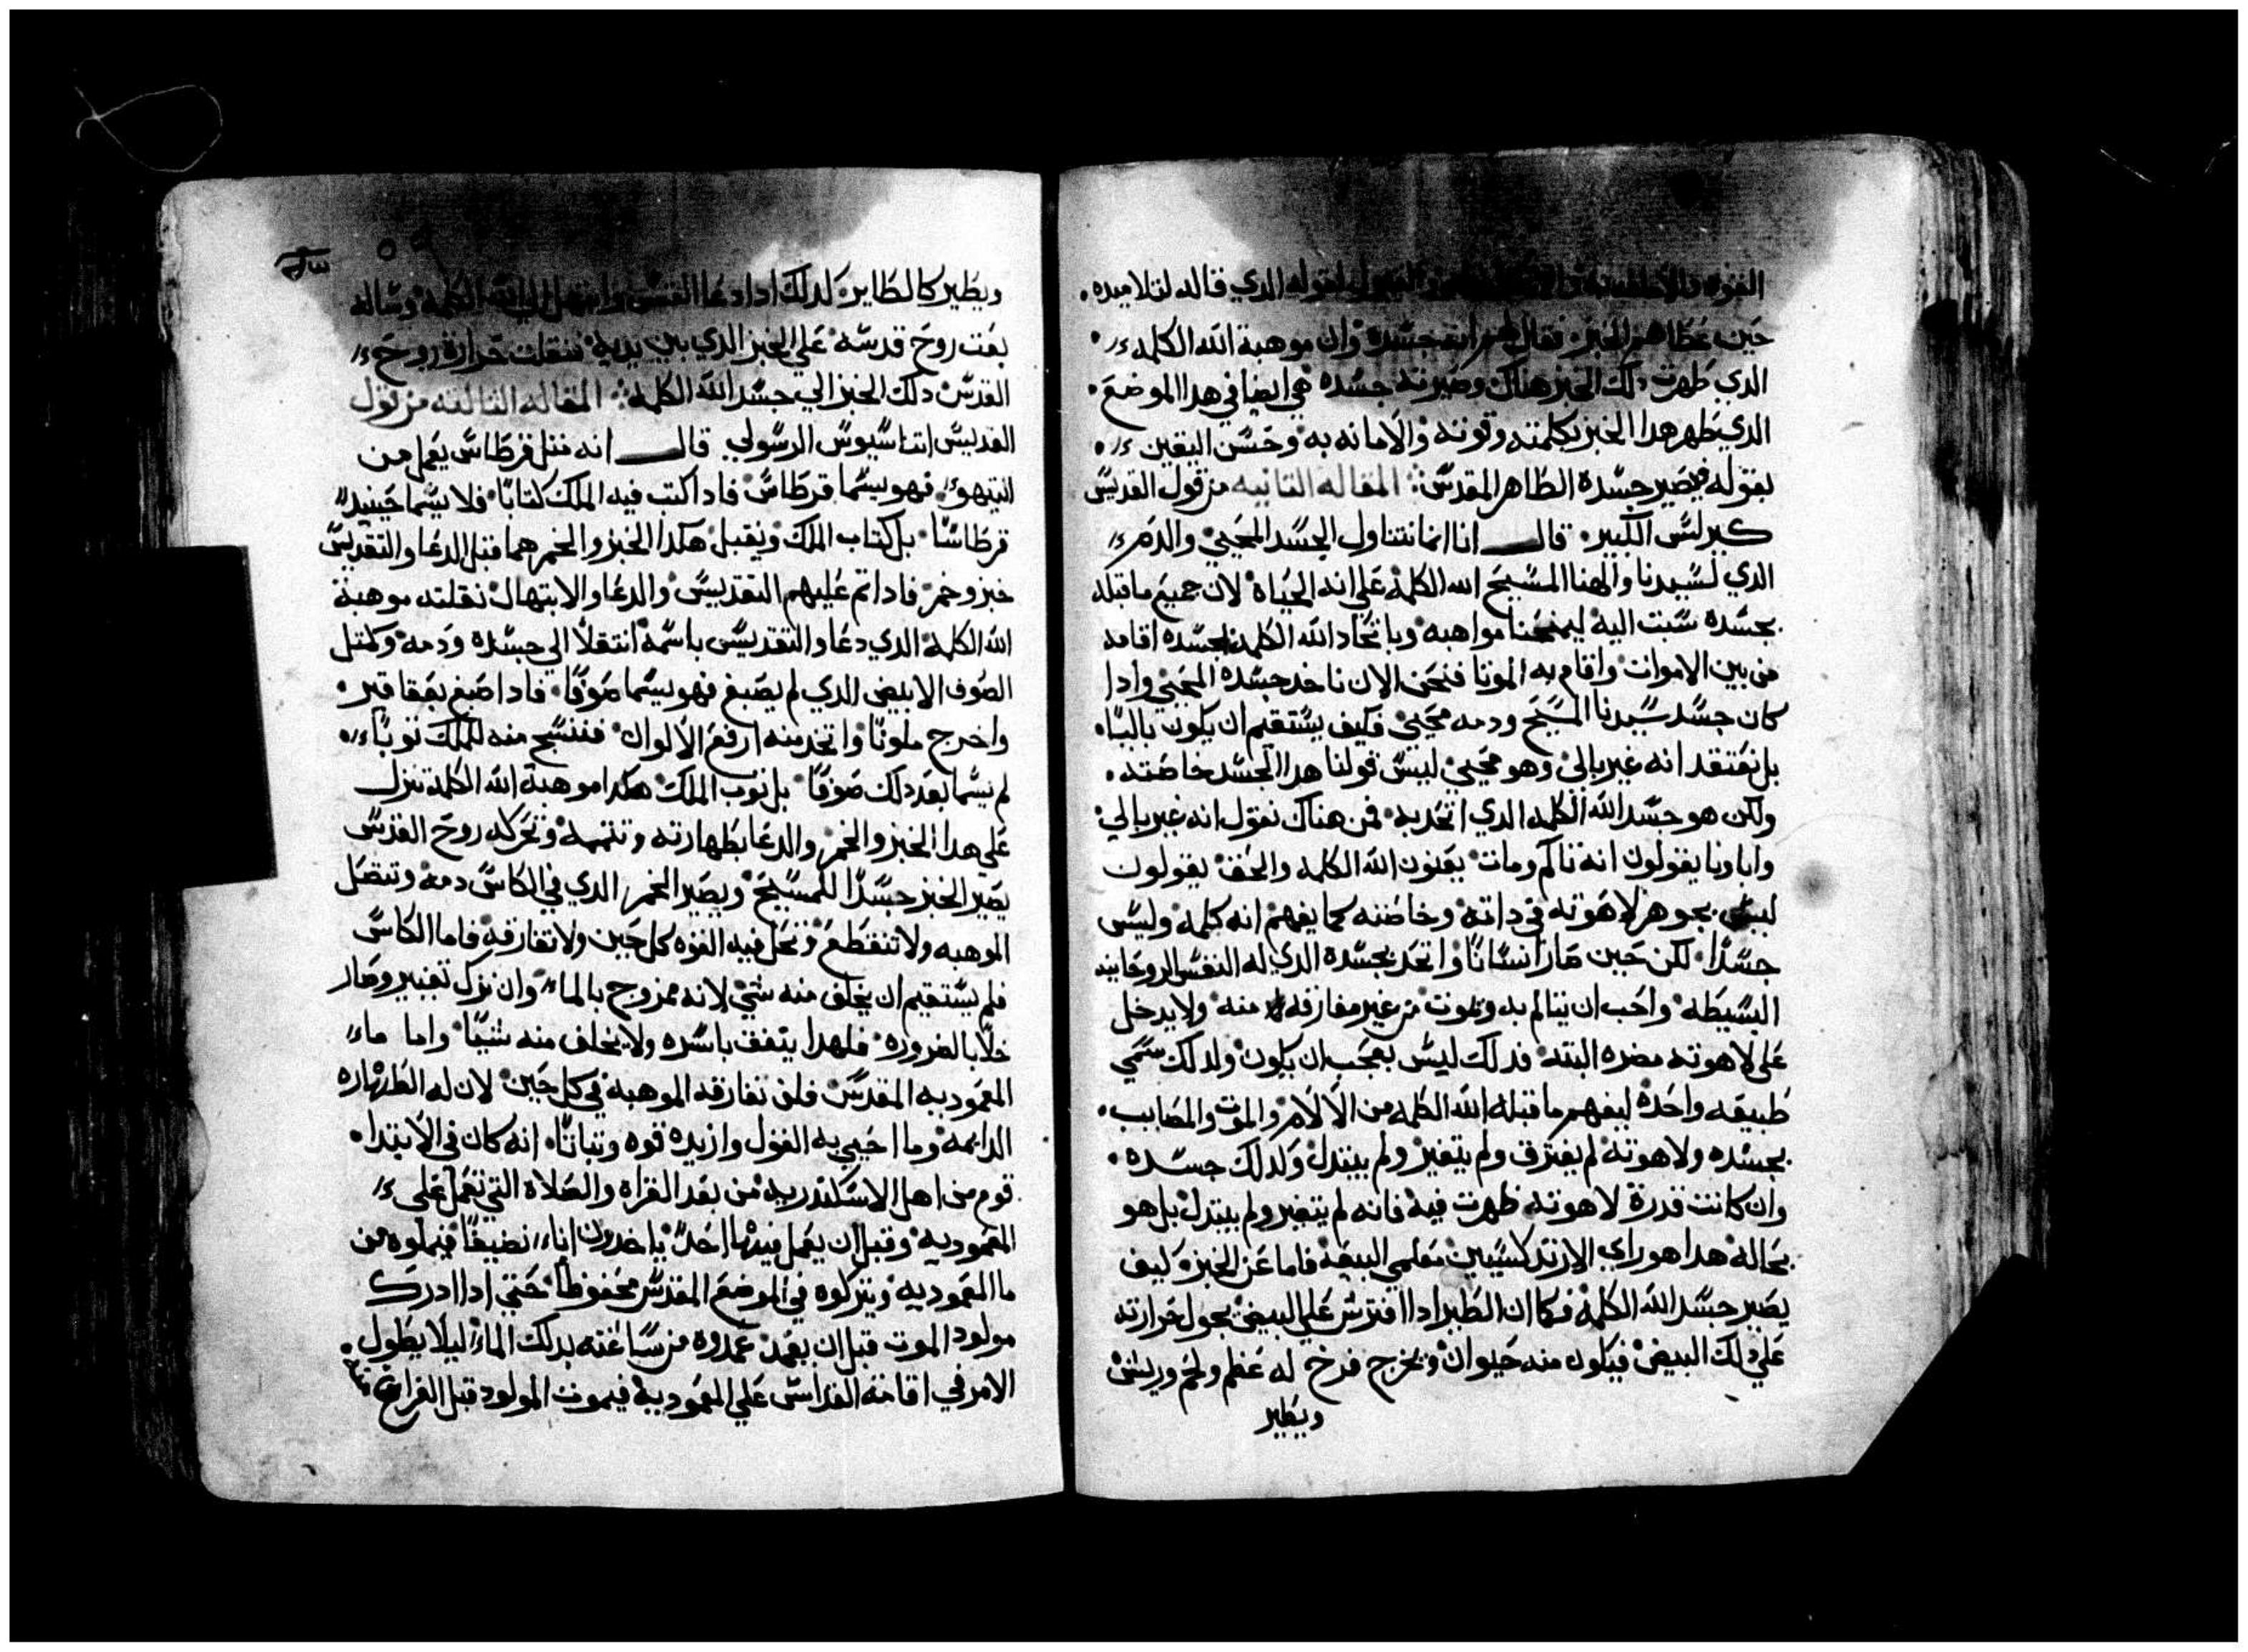 القوه لقوله الدي قاله لتلاميده.
حين عطاهم الخبز فقال لهم انه جسده وان موهبة الله الكلمه
الدي طهرت دلك الخبز هناك وصيرته جسده هي ايضا في هدا الموضع.
الدي يطهر هدا الخبز بكلمته وقوته والامانه به وحسن اليقين
بقوله فيصير جسده الطاهر المقدس: المقاله التانيه من قول القديس
كيرلس الكبير. قال انا انما نتناول الجسد المحيي والدم
الدي لسيدنا والهنا المسيح الله الكلمة علي انه الحياة لان جميع ما قبله
بجسده نسبت اليه ليمنحنا مواهبه وباتحاد الله الكلمة بجسده اقامه
من بين الاموات واقام به الموتا فنحن الان ناخد جسده المحيي وادا
كان جسد سيدنا المسيح ودمه محيي فكيف يستقيم ان يكون باليا.
بل نعتقد انه غير بالي وهو محيي ليس قولنا هدا الجسد خاصته.
ولكن هو جسد الله الكلمه الدي اتحد به فمن هناك نقول انه غير بالي
واباونا يقولون انه تالم ومات يعنون الله الكلمه والحق يقولون
ليس بجوهر لاهوته في داته وخاصته كما يفهم انه كلمه وليس
جسدا لكن حين صار انسانا واتحد بجسده الدي له النفس الروحانيه
البسيطه واحب ان يتالم به ويموت من غير مفارقه منه ولا يدخل
على لاهوته مضره البته فدلك ليس بعجب ان يكون ولدلك سمي
طبيعه واحده ليفهم ما قبله الله الكلمه من الالام والموت والمصايب.
بجسده ولاهوته لم يفترق ولم يتغير ولم يتبدل ولدلك جسده.
وان كانت قدرة لاهوته ظهرت فيه فانه لم يتغير ولم يتبدل بل هو
بحاله هدا هو راي الارتدكسيين معلمي البيعة فاما عن الخبز كيف
يصير جسد الله الكلمة فكما ان الطير ادا افترش علي البيض بحول حرارته
علي دلك البيض فيكون منه حيوان ويخرج فرخ له عظم ولحم وريش
ويطير
٥٩
ويطير كالطاير كدلك ادا دعا القس وابتهل الي الله الكلمة وساله
بعت روح قدسه علي الخبز الدي بين يديه نقلت حرارة روح
القدس دلك الخبز الي جسد الله الكلمة: المقاله التالته من قول
القديس اتناسيوس الرسولي قال انه متل قرطاس يعمل من
فهو يسما قرطاس فادا كتب فيه الملك كتابا فلا يسما حينيد
قرطاسا بل كتاب الملك ويقبل هكدا الخبز والخمر هما قبل الدعا والتقديس
خبز وخمر فادا تم عليهم التقديس والدعا والابتهال نقلته موهبة
الله الكلمة الدي دعا والتقديس باسمه انتقلا الي جسده ودمه وكمتل
الصوف الابيض الدي لم يصبغ فهو يسما صوفا فادا صبغ بعقاقير.
واخرج ملونا واتخد منه ارفع الالوان فننسج منه للملك توبا
لم يسما بعد دلك صوفا بل توب الملك هكدا موهبة الله الكلمة تنزل
علي هدا الخبز والخمر والدعا بطهارته وتتممه وتحركه روح القدس
يصير الخبز جسدا للمسيح ويصير الخمر الدي في الكاس دمه وتتصل
الموهبه ولا تنقطع وتحل فيه القوه كل حين ولا تفارقه فاما الكاس
فلم يستقيم ان يخلف منه شي لانه ممزوج بالماء وان ترك تغيير وصار
خلا بالضروره فلهدا ينفق باسره ولا يخلف منه شيا واما ماء
المعموديه المقدس فلن تفارقه الموهبة في كل حين لان له الطهاره
الدايمه وما احيي به القول وازيده قوه وتباتا. انه كان في الابتدا.
قوم من اهل الاسكندريه من بعد القراة والصلاة التي تعمل على
المعموديه وقبل ان يعمل فيها احد ياخدون اناء نضيفا فيملوه من
ما المعموديه ويتركوه في الموضع المقدس محفوظا حتي ادا ادرك
مولود الموت قبل ان يعمد عمدوه من ساعته بدلك الماء ليلا يطول.
الامر في اقامة القداس علي المعمودية فيموت المولود قبل الفراغ